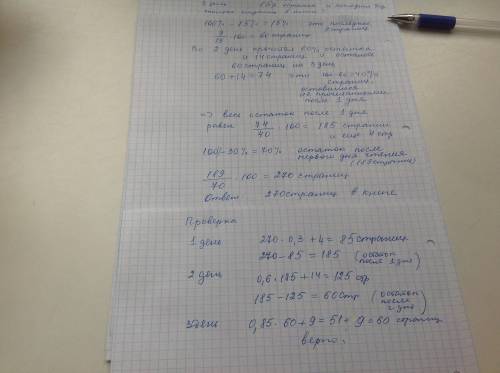 100% - 85% = 15% это последние
9/15 · 100 = 60 страниц
Во 2 день прочитал 60% остатка
и 14 страниц и осталось
60 страниц на 3 день
60 + 14 = 74 это 100-60=40%
страниц
оставшихся
не прочитанными
после 1 дня
=> весь остаток после 1 дня
равен 74/40 · 100 = 185 страниц
и еще 4 стр
100% - 30% = 70% остаток после
первого дня чтения
(189 страниц)
189/70 · 100 = 270 страниц
Ответ 270 страниц в книге
Проверка
1 день 270 · 0,3 + 4 = 85 страниц
270 - 85 = 185 (остаток после 1 дня)
2 день 0,6 · 185 + 14 = 125 стр
185 - 125 = 60 стр (остаток после 2 дня)
3 день 0,85 · 60 + 9 = 51 + 9 = 60 страниц
верно.